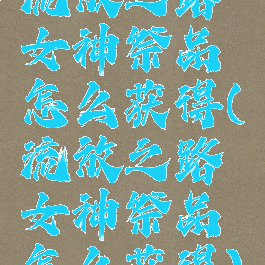 流放之路
女神祭品
怎么获得(
流放之路
女神祭品
怎么获得)